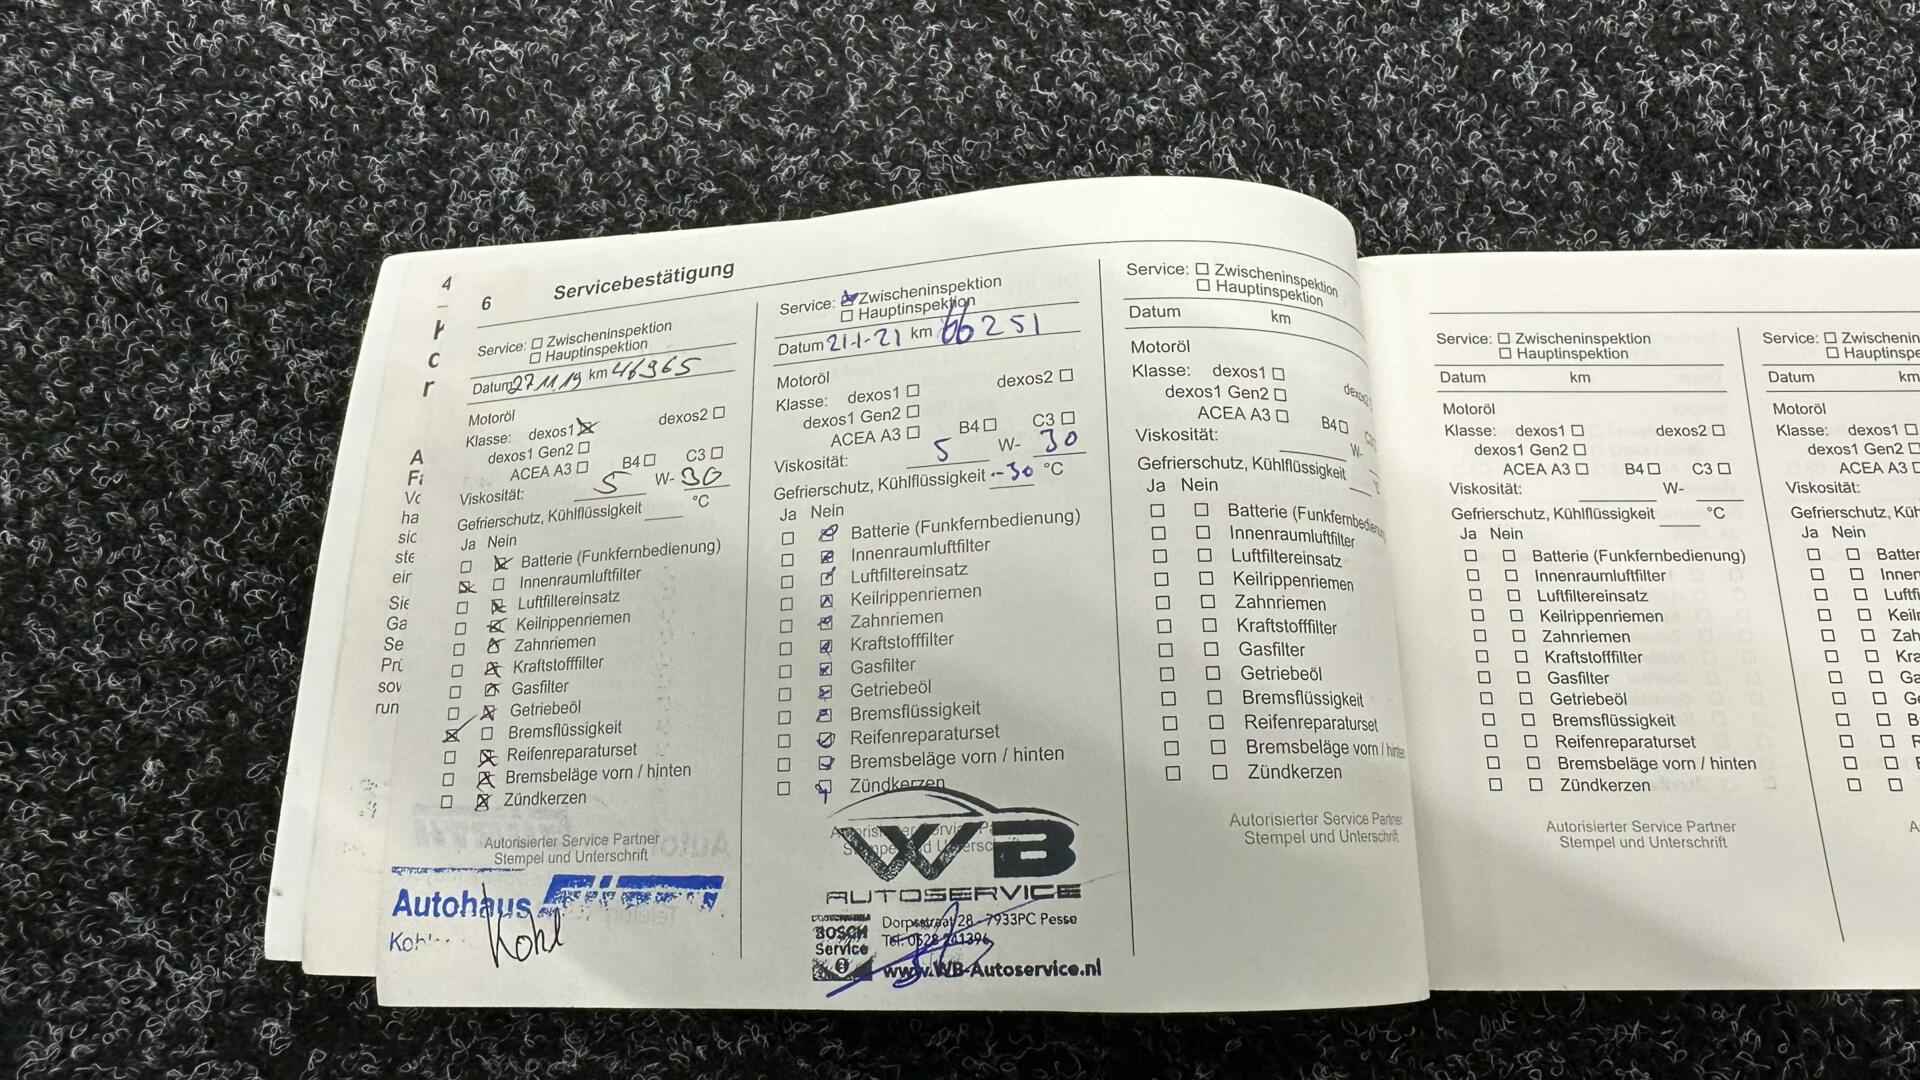 4
6 Servicebestätigung
Service: Zwischeninspektion
Hauptinspektion
Datum 27.11.19 km 46965
Motoröl
Klasse: dexos1 dexos2
dexos1 Gen2
ACEA A3 B4 C3
Viskosität: 5 W- 30
Gefrierschutz, Kühlflüssigkeit °C
Ja Nein
Batterie (Funkfernbedienung)
Innenraumluftfilter
Luftfiltereinsatz
Keilrippenriemen
Zahnriemen
Kraftstofffilter
Gasfilter
Getriebeöl
Bremsflüssigkeit
Reifenreparaturset
Bremsbeläge vorn / hinten
Zündkerzen
Autorisierter Service Partner
Stempel und Unterschrift
Autohaus
Kohl
Service: Zwischeninspektion
Hauptinspektion
Datum 21-1-21 km 66251
Motoröl
Klasse: dexos1 dexos2
dexos1 Gen2
ACEA A3 B4 C3
Viskosität: 5 W- 30
Gefrierschutz, Kühlflüssigkeit -30 °C
Ja Nein
Batterie (Funkfernbedienung)
Innenraumluftfilter
Luftfiltereinsatz
Keilrippenriemen
Zahnriemen
Kraftstofffilter
Gasfilter
Getriebeöl
Bremsflüssigkeit
Reifenreparaturset
Bremsbeläge vorn / hinten
Zündkerzen
WB
AUTOSERVICE
BOSCH
Service
Dorpsstraat 28 - 7933PC Pesse
Tel: 0528 241396
www.WB-Autoservice.nl
Service: Zwischeninspektion
Hauptinspektion
Datum km
Motoröl
Klasse: dexos1
dexos1 Gen2
ACEA A3 B4
Viskosität: W-
Gefrierschutz, Kühlflüssigkeit
Ja Nein
Batterie (Funkfernbedienung
Innenraumluftfilter
Luftfiltereinsatz
Keilrippenriemen
Zahnriemen
Kraftstofffilter
Gasfilter
Getriebeöl
Bremsflüssigkeit
Reifenreparaturset
Bremsbeläge vorn / hinten
Zündkerzen
Autorisierter Service Partner
Stempel und Unterschrift
Service: Zwischeninspektion
Hauptinspektion
Datum km
Motoröl
Klasse: dexos1 dexos2
dexos1 Gen2
ACEA A3 B4 C3
Viskosität: W-
Gefrierschutz, Kühlflüssigkeit °C
Ja Nein
Batterie (Funkfernbedienung)
Innenraumluftfilter
Luftfiltereinsatz
Keilrippenriemen
Zahnriemen
Kraftstofffilter
Gasfilter
Getriebeöl
Bremsflüssigkeit
Reifenreparaturset
Bremsbeläge vorn / hinten
Zündkerzen
Autorisierter Service Partner
Stempel und Unterschrift
Service: Zwischeninsp
Hauptinspe
Datum km
Motoröl
Klasse: dexos1
dexos1 Gen2
ACEA A3
Viskosität:
Gefrierschutz, Küh
Ja Nein
Batter
Innen
Luftfi
Keil
Zah
Kra
Ga